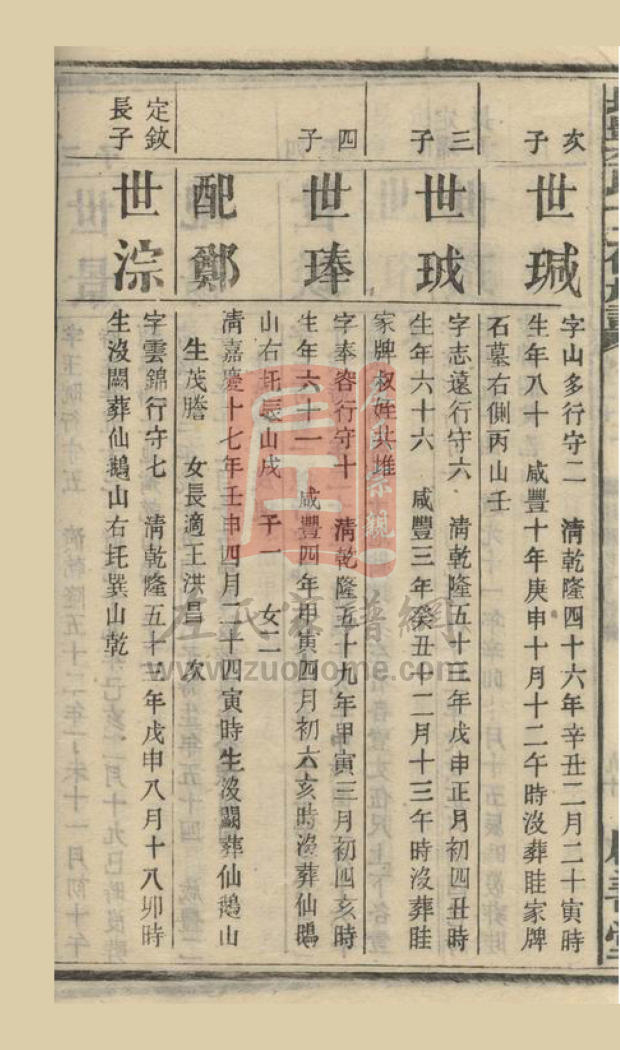 次子
世瑊
字山多行守二 清乾隆四十六年辛丑二月二十寅時
生年八十 咸豐十年庚申十月十二午時沒葬眭家牌
石墓右側丙山壬
三子
世珹
字志遠行守六 清乾隆五十三年戊申正月初四丑時
生年六十六 咸豐三年癸丑十二月十三午時沒葬眭
家牌叔姪共堆
四子
世琫
字奉容行守十 清乾隆五十九年甲寅三月初四亥時
生年六十一 咸豐四年甲寅四月初六亥時沒葬仙鵝
山右托辰山戌 子一 女二
配鄭
清嘉慶十七年壬申四月二十四寅時生沒闕葬仙鵝山
生茂謄 女長適王洪昌 次
定敛長子
世淙
字雲錦行守七 清乾隆五十三年戊申八月十八卯時
生沒闕葬仙鵝山右托巽山乾
左氏家譜網
www.zuohome.com